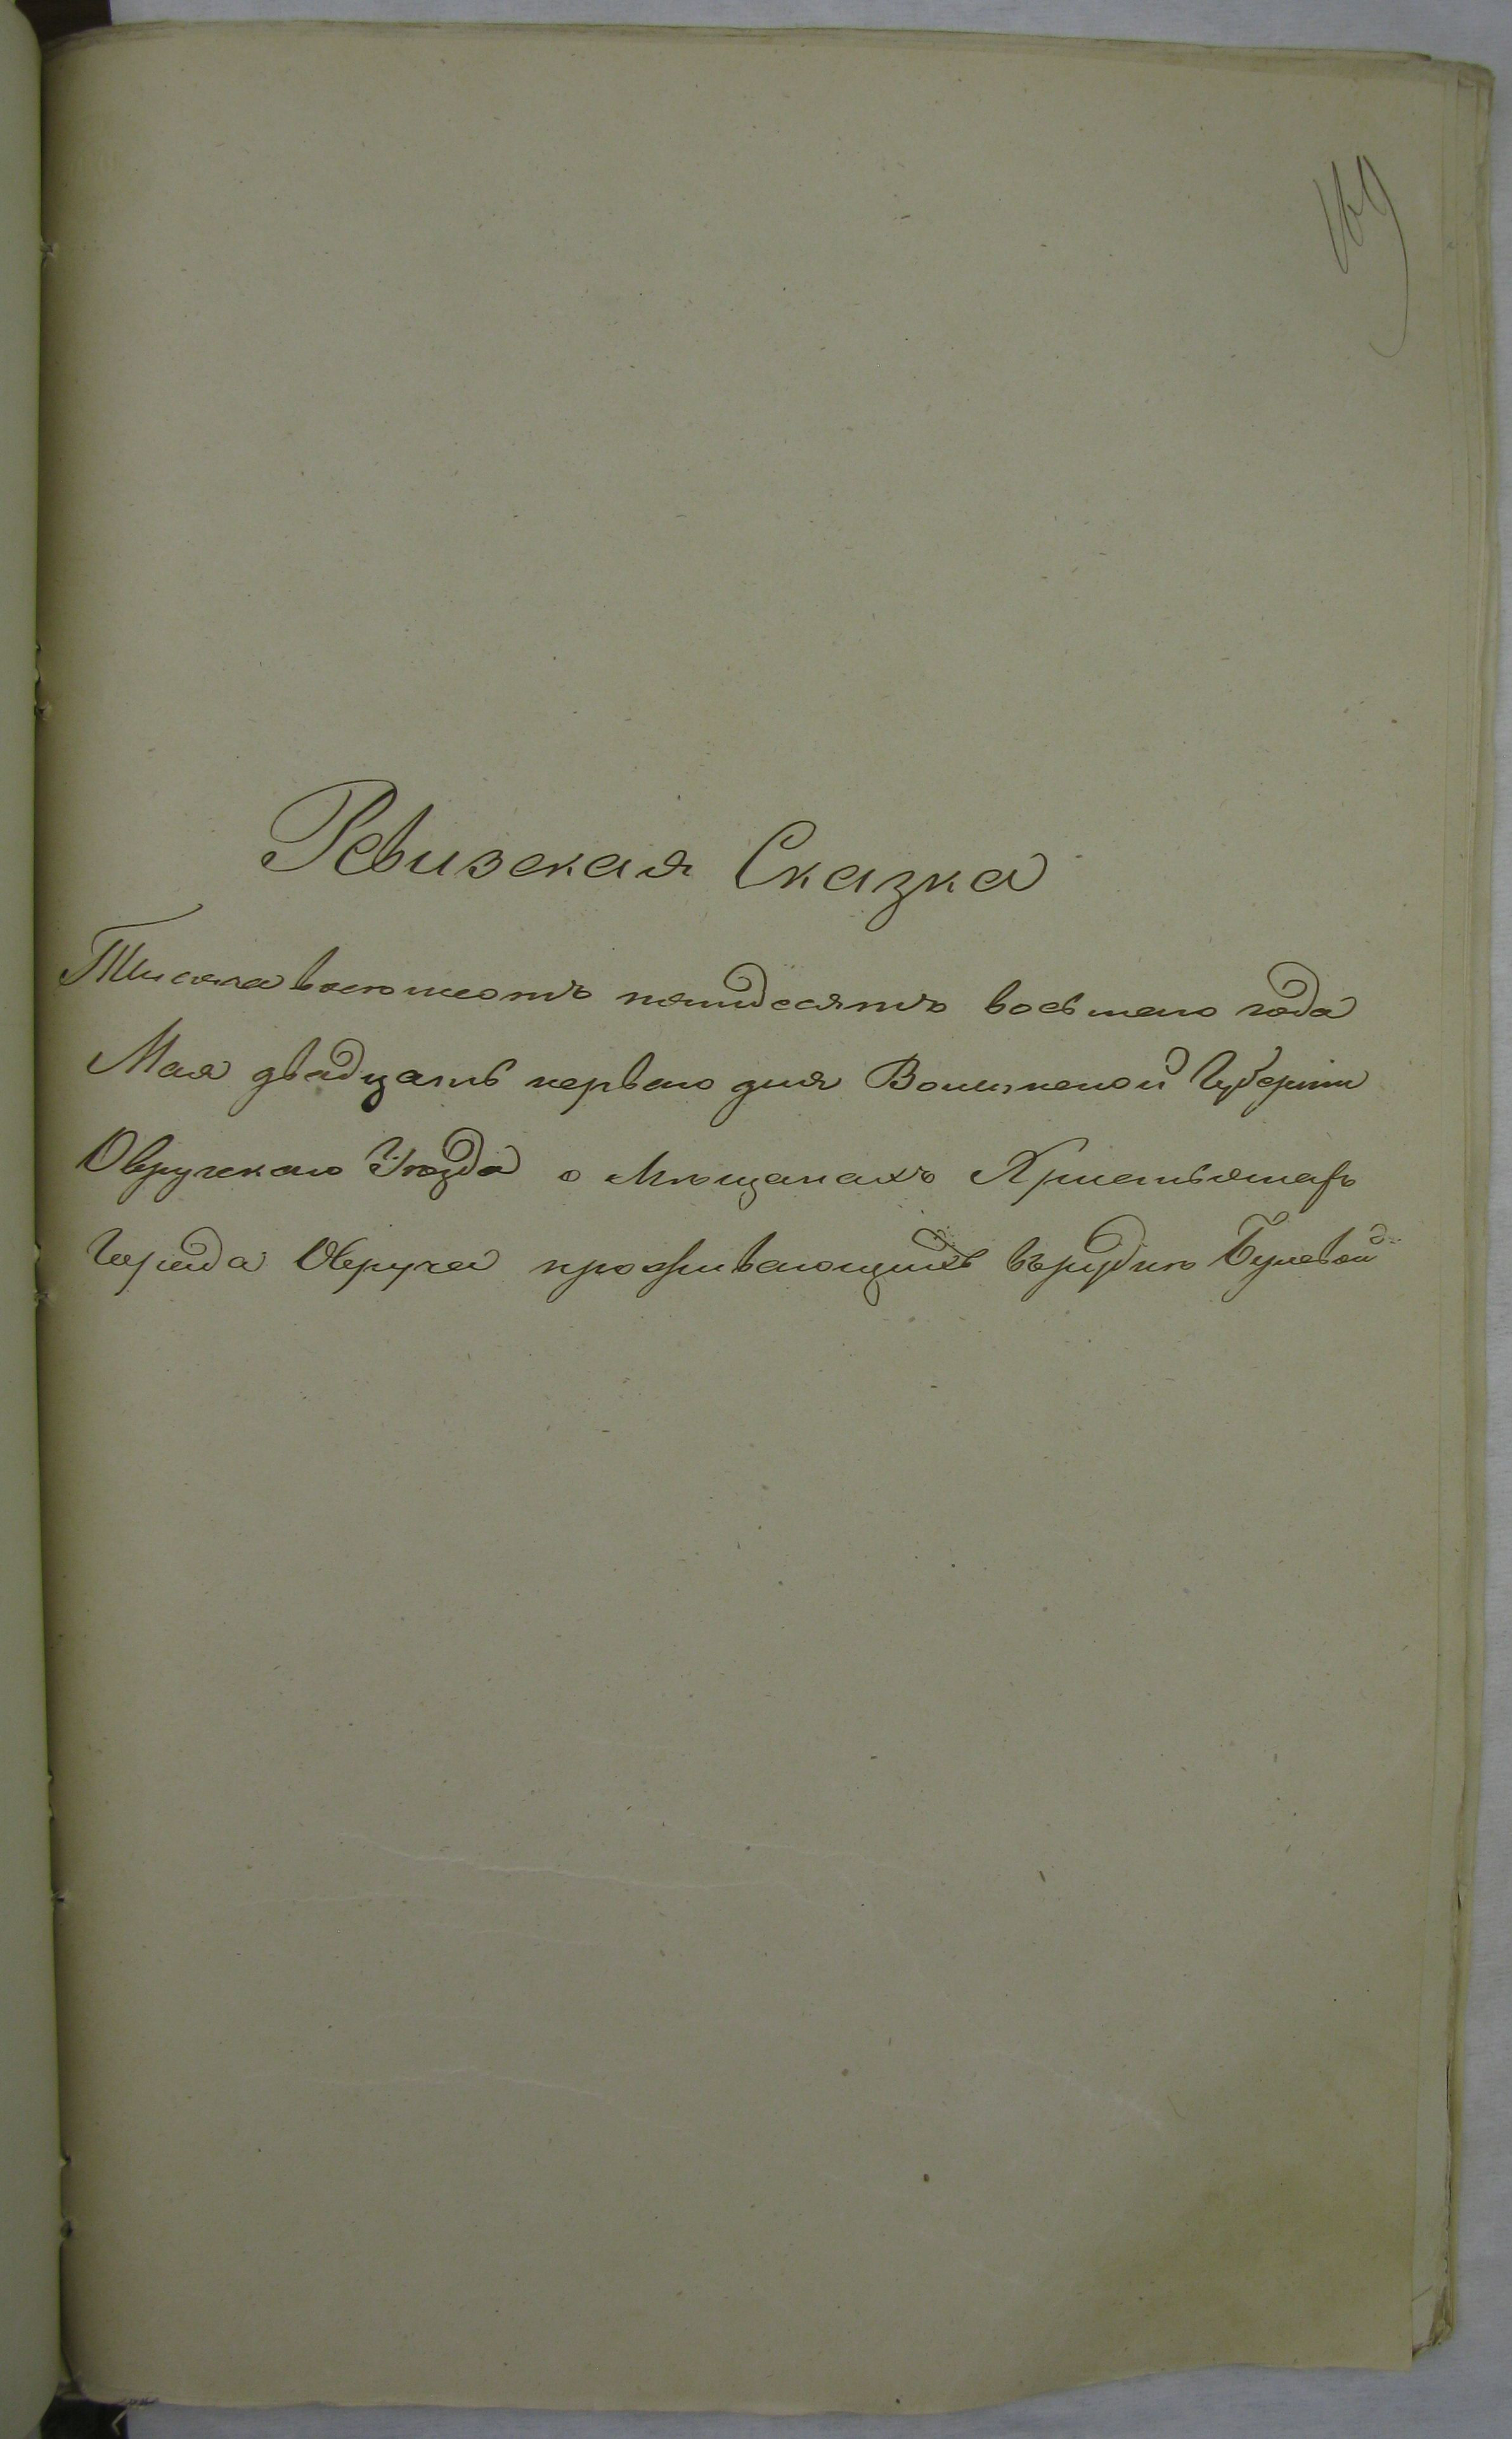 169
Ревизская Сказка
Тысяча восемьсотъ пятидесятъ восьмого года
Мая двадцать первого дня Волынской Губернии
Овручскаго Уѣзда о Мѣщанахъ Христьянахъ
Города Овруча проживающихъ въ рудни